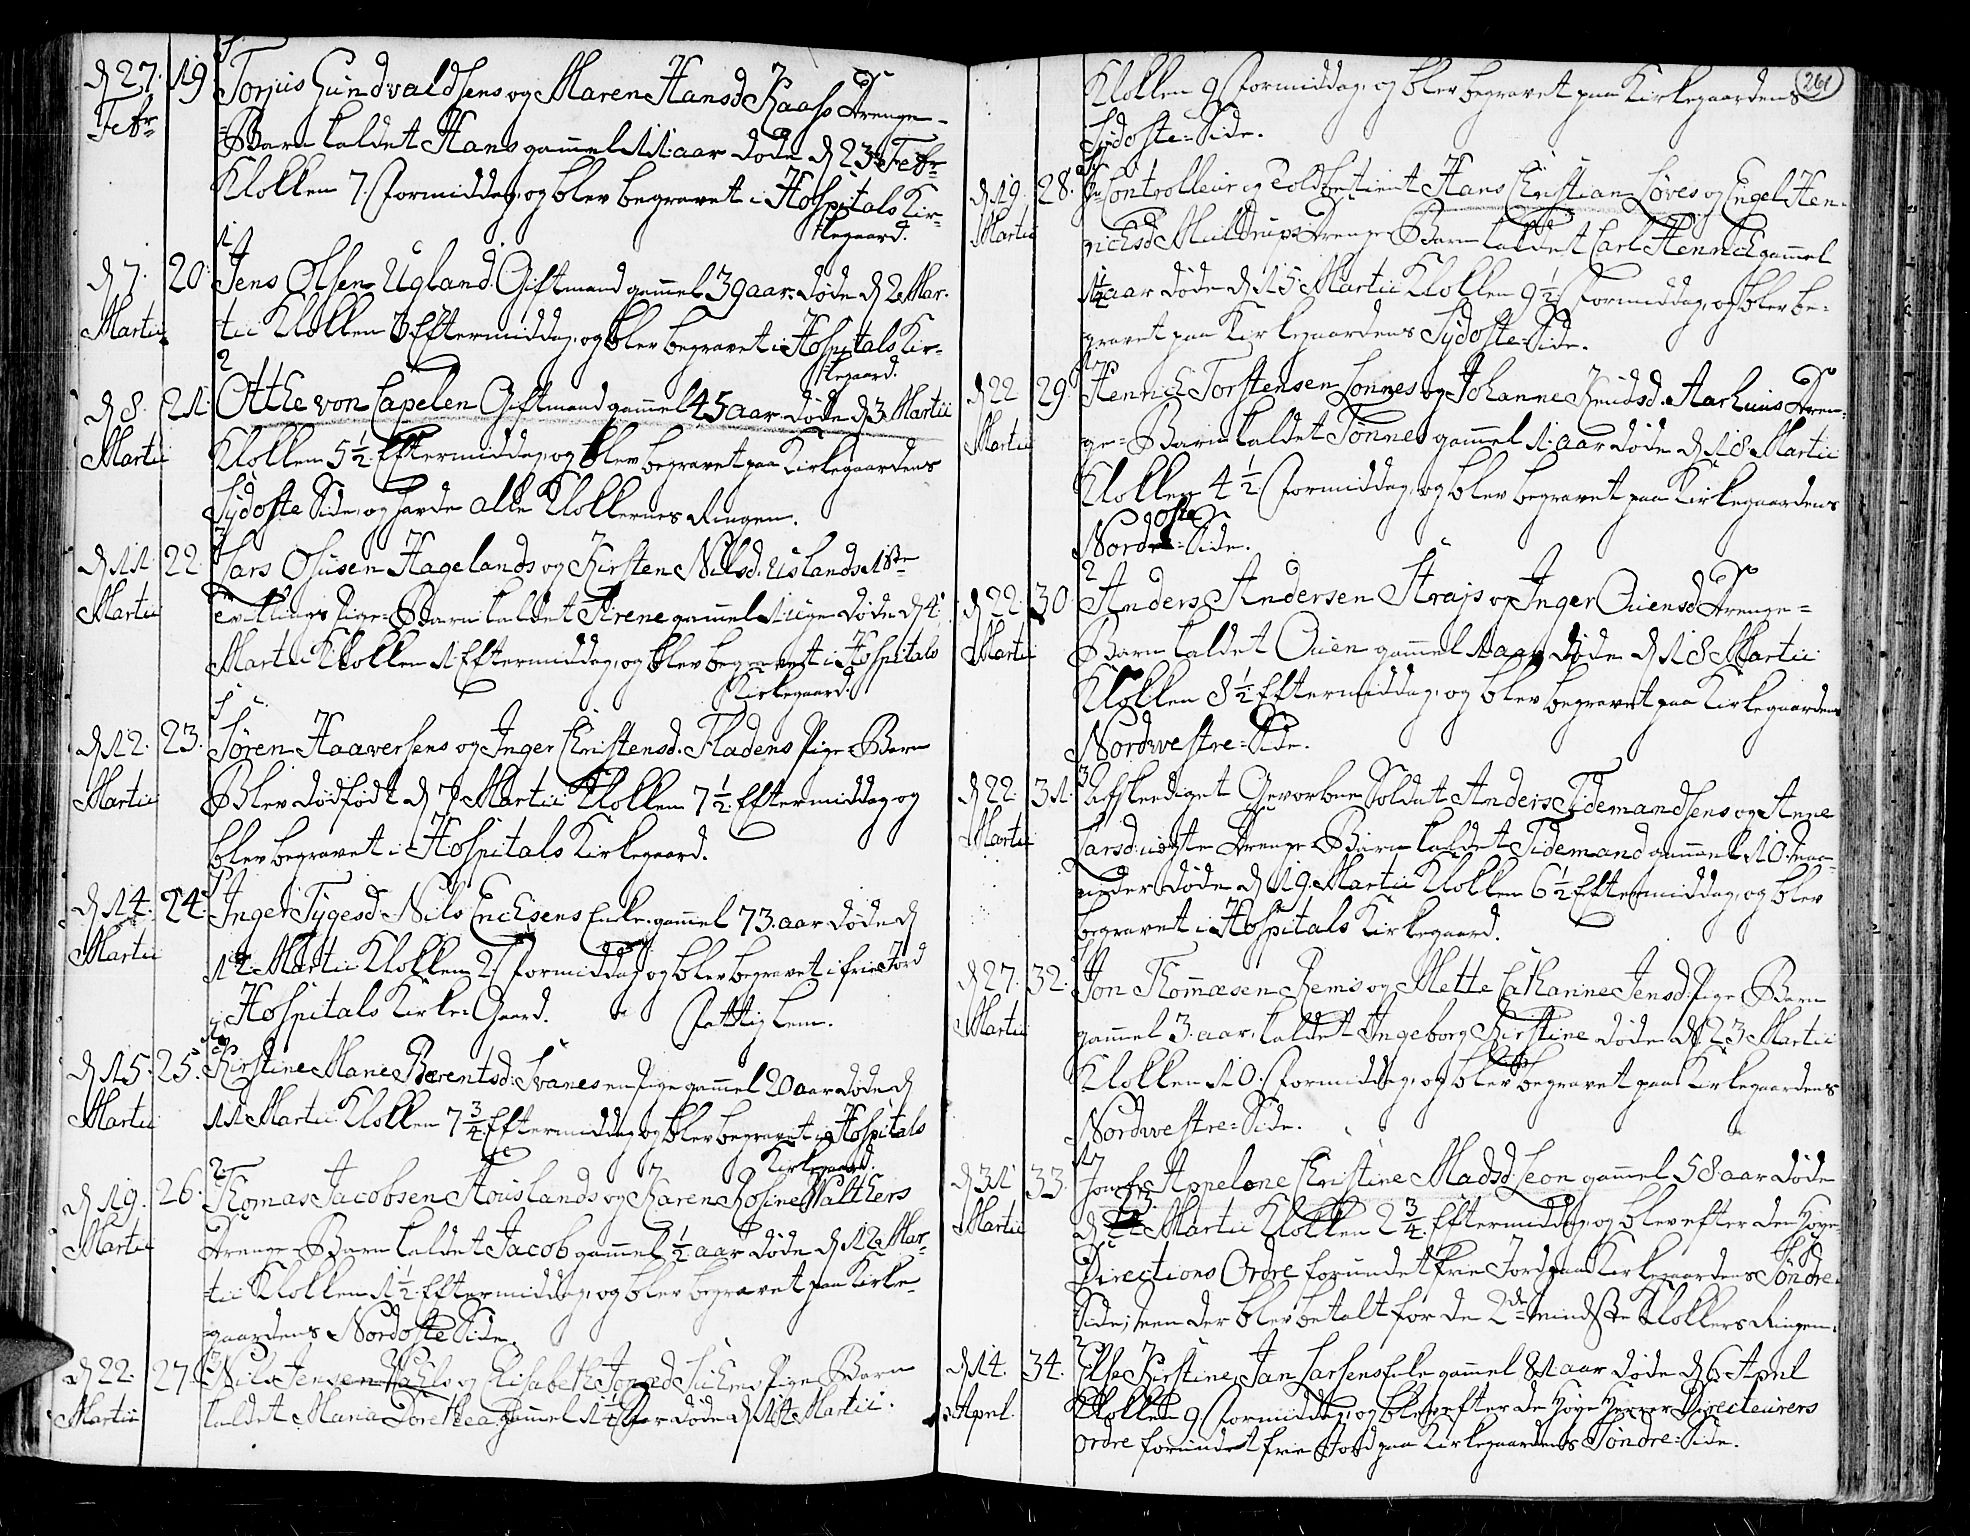 d 27. 19 Torjus Gundvaldsens og Maren Hansd Kaass Drenge-
Febr Barn kaldet Hans gammel 11 aar døde d 23 Febr
Klokken 7. Formiddag, og blev begravet i Hospitals Kir-
kegaard.
d 7. 20. Jens Olsen Ugland. Giftmand gammel 39 aar. døde d 2 Mar-
Martii tii Klokken 3 Eftermiddag, og blev begravet i Hospitals Kir-
kegaard.
d 8. 21. Otthe von Capelen Giftmand gammel 45 aar. døde d 3 Martii
Martii Klokken 5 1/2 Eftermiddag, og blev begravet paa Kirkegaardens
Sydoste Side, og havde alle Klokkernes Ringen.
d 11. 22 Lars Osusen Hagelands og Kirsten Nilsd. Uslands 1ste
Martii tvillings Pige-Barn kaldet Arene gammel 1 uge døde d 4
Martii Klokken 1 Eftermiddag, og blev begravet i Hospitals
Kirkegaard.
d 12. 23. Søren Haaversens og Inger Christensd. Fladens Pige-Barn
Martii Blev dødfødt d 7 Martii Klokken 7 1/2 Eftermiddag og
blev begravet i Hospitals Kirkegaard.
d 14. 24. Inger Tygesd Nils Erichsens Enke gammel 73. aar døde d
Martii Martii Klokken 2. Formiddag og blev begravet i frie Jord
i Hospitals Kirke-Gaard. Fattig Lem.
d 15. 25. Kirstine Marie Berentsd: Svanes en Pige gammel 20 aar døde d
Martii 11 Martii Klokken 7 3/4 Eftermiddag og blev begravet i Hospitals
Kirkegaard.
d 19. 26. Thomas Jacobsen Houslands og Karen Rosine Walthers
Martii Drenge-Barn kaldet Jacob gammel 1/2 aar døde d 12 Mar-
tii Klokken 1 1/2 Eftermiddag, og blev begravet paa Kirke-
gaardens Nordoste Side.
d 22. 27. Nils Jensen Kahls og Elisabeth Jonsd Pige Barn
Martii kaldet Maria Dorethea gammel 1 1/2 aar døde d 14 Martii.
261
Klokken 9 Formiddag, og blev begravet paa Kirkegaardens
Sydoste-Side.
d 19. 28. Controlleur og Toldbetient Hans Christian Løves og Engel Hen-
Martii richsd Muldrups Drenge Barn kaldet Carl Henrich gammel
1/2 aar døde d 15 Martii Klokken 9 1/2 Formiddag, og blev be-
gravet paa Kirkegaardens Sydoste-Side.
d 22 29. Henrich Torstensen Lonnes og Johanne Knudsd. Aarhuus Dren-
Martii ge-Barn kaldet Tønnes gammel 1 aar døde d 18 Martii
Klokken 4 1/2 Formiddag, og blev begravet paa Kirkegaardens
Nordoste-Side.
d 22. 30 Anders Andersen Strajs og Inger Ouensd Drenge-
Martii Barn kaldet Ouen gammel 1 aar døde d 18 Martii
Klokken 8 1/2 Eftermiddag, og blev begravet paa Kirkegaardens
Nordwestre-Side.
d 22. 31. Afskediget Gevorben Soldat Anders Tidemandsens og Anne
Martii Larsd: uægte Drenge-Barn kaldet Tidemand gammel 10. maa-
neder døde d 19. Martii Klokken 6 1/2 Eftermiddag, og blev
begravet i Hospitals Kirkegaard.
d 27. 32. Jon Thommesen Rems og Mette Catharine Jensd: Pige Barn
Martii gammel 3 aar, kaldet Ingeborg Kirstine døde d 23 Martii
Klokken 10. Formiddag, og blev begravet paa Kirkegaardens
Nordwestre-Side.
d 31 33. Jomfr Appelone Christine Madsd: Leon gammel 58 aar døde
Martii d 23 Martii Klokken 2 3/4. Eftermiddag, og blev efter de Høye
Directions Ordre forundet frie Jord paa Kirkegaardens Søndre-
Side; men der blev betalt for de 2de mindste Klokkers Ringen.
d 14. 34. Else Kirstine, Jan Larsens Enke gammel 81 aar døde d 6 April
April. Klokken 9 Formiddag, og blev efter de Høye Herrer Directeurers
Ordre forundet frie Jord paa Kirkegaardens Søndre-Side.